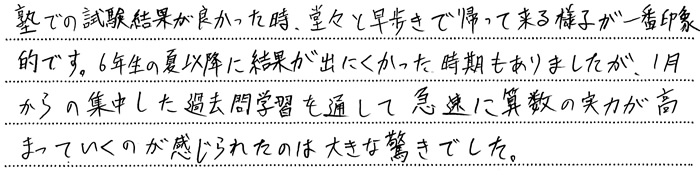 塾での試験結果が良かった時、堂々と早歩きで帰って来る様子が一番印象
的です。6年生の夏以降に結果が出にくかった時期もありましたが、1月
からの集中した過去問学習を通して急速に算数の実力が高
まっていくのが感じられたのは大きな驚きでした。